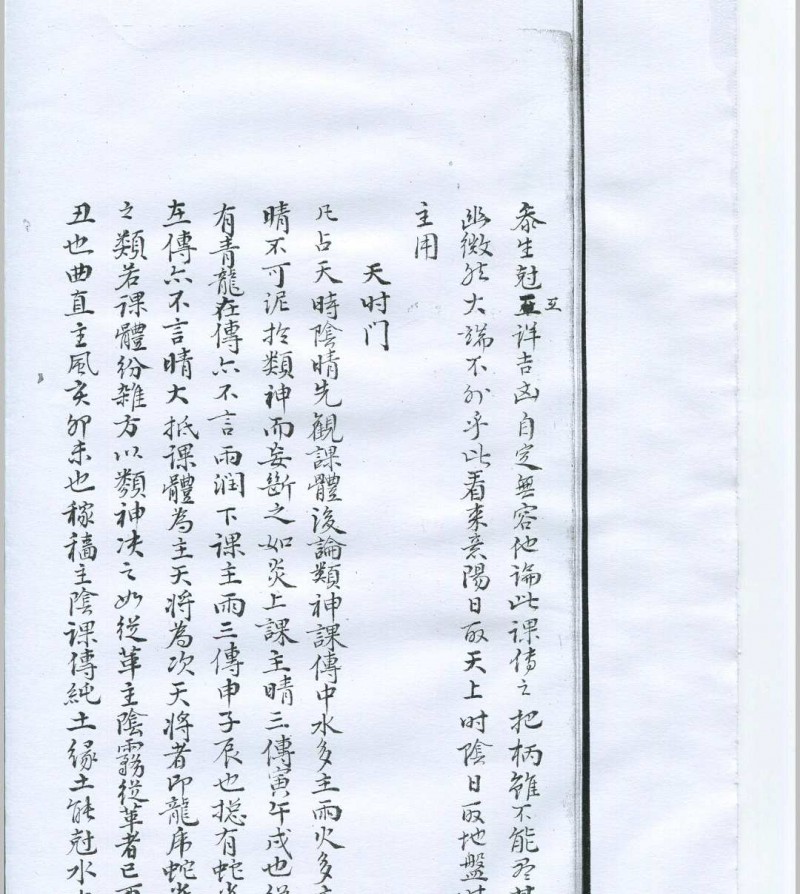 泰生尅互詳吉凶自定無容他論此課傳之把柄雖不能尽其
幽微然大端不外乎此看来意陽日取天上时陰日取地盤时
主用
天时门
凡占天時陰晴先觀課體後論類神課傳中水多主雨火多主
晴不可泥於類神而妄斷之如炎上課主晴三傳寅午戌也縱
有青龍在傳亦不言雨润下課主雨三傳申子辰也揔有蛇雀
在傳亦不言晴大抵課體為主天將為次天將者即龍虎蛇雀
之類若課體紛雜方以類神决之如從革主陰霧從革者巳酉
丑也曲直主風亥卯未也稼穡主陰課傳純土缘土能尅水